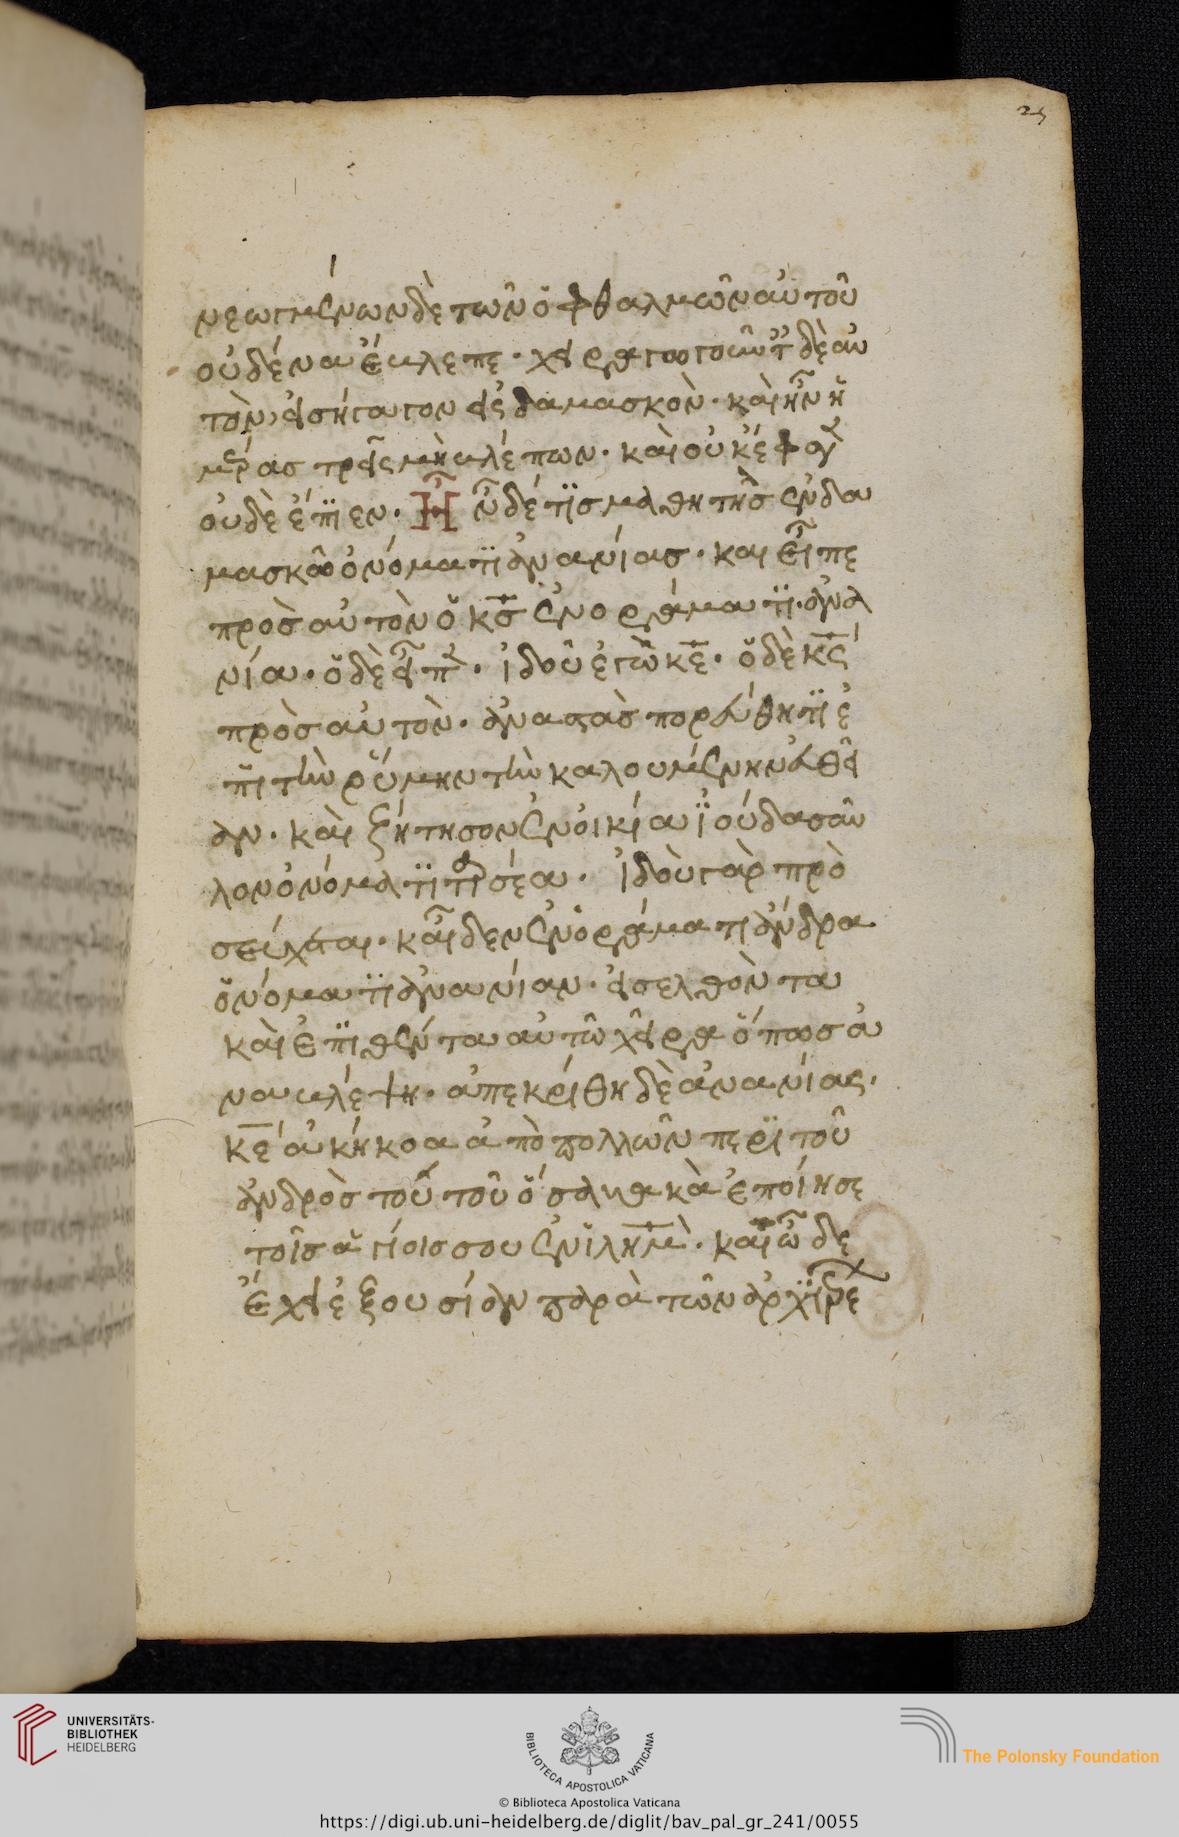 25
νεωγμένων δὲ τῶν ὀφθαλμῶν αὐτοῦ
οὐδένα ἔβλεπε· χειραγωγοῦντ δὲ αὐ
τὸν, εἰσήγαγον εἰς δαμασκὸν· καὶ ἦν ἡ
μέρας τρεῖς μὴ βλέπων· καὶ οὐκ ἔφαγ
οὐδὲ ἔπιεν· Ἦ ν δέ τις μαθητὴς ἐν δα
μασκῶ ὀνόματι ἀνανίας· και εἶπε
πρὸς αὐτὸν ὁ κς ἐν ὁράματι· ἀνα
νία· ὁ δὲ εἶπ· ἰδοῦ ἐγὼ κε· ὁ δὲ κς
πρὸς αὐτὸν· ἀναστὰς πορεύθητι ἐ
πὶ τὴν ῥύμην τὴν καλουμένην εὐθεῖ
αν· καὶ ζήτησον ἐν οἰκία ἰούδα σαῦ
λον ὀνόματι ταρσέα· ἰδοὺ γὰρ προ
σεύχεται· καὶ εἶδεν ἐν ὁράματι ἄνδρα
ὀνόματι ἀνανίαν· εἰσελθὸντα
καὶ ἐπιθέντα αὐτῶ χεῖρα ὅπως ἀ
ναβλέψη· ἀπεκρίθη δὲ ἀνανίας·
κε ἀκήκοα ἀπὸ πολλῶν περὶ τοῦ
ἀνδρὸς τούτου ὅσα κακὰ ἐποίησε
τοῖς ἁγίοις σου ἐν ιλημ· καὶ ὧδε
ἔχει ἐξουσίαν παρὰ τῶν ἀρχιερε
UNIVERSITÄTS-
BIBLIOTHEK
HEIDELBERG
BIBLIOTECA APOSTOLICA VATICANA
© Biblioteca Apostolica Vaticana
The Polonsky Foundation
https://digi.ub.uni-heidelberg.de/diglit/bav_pal_gr_241/0055